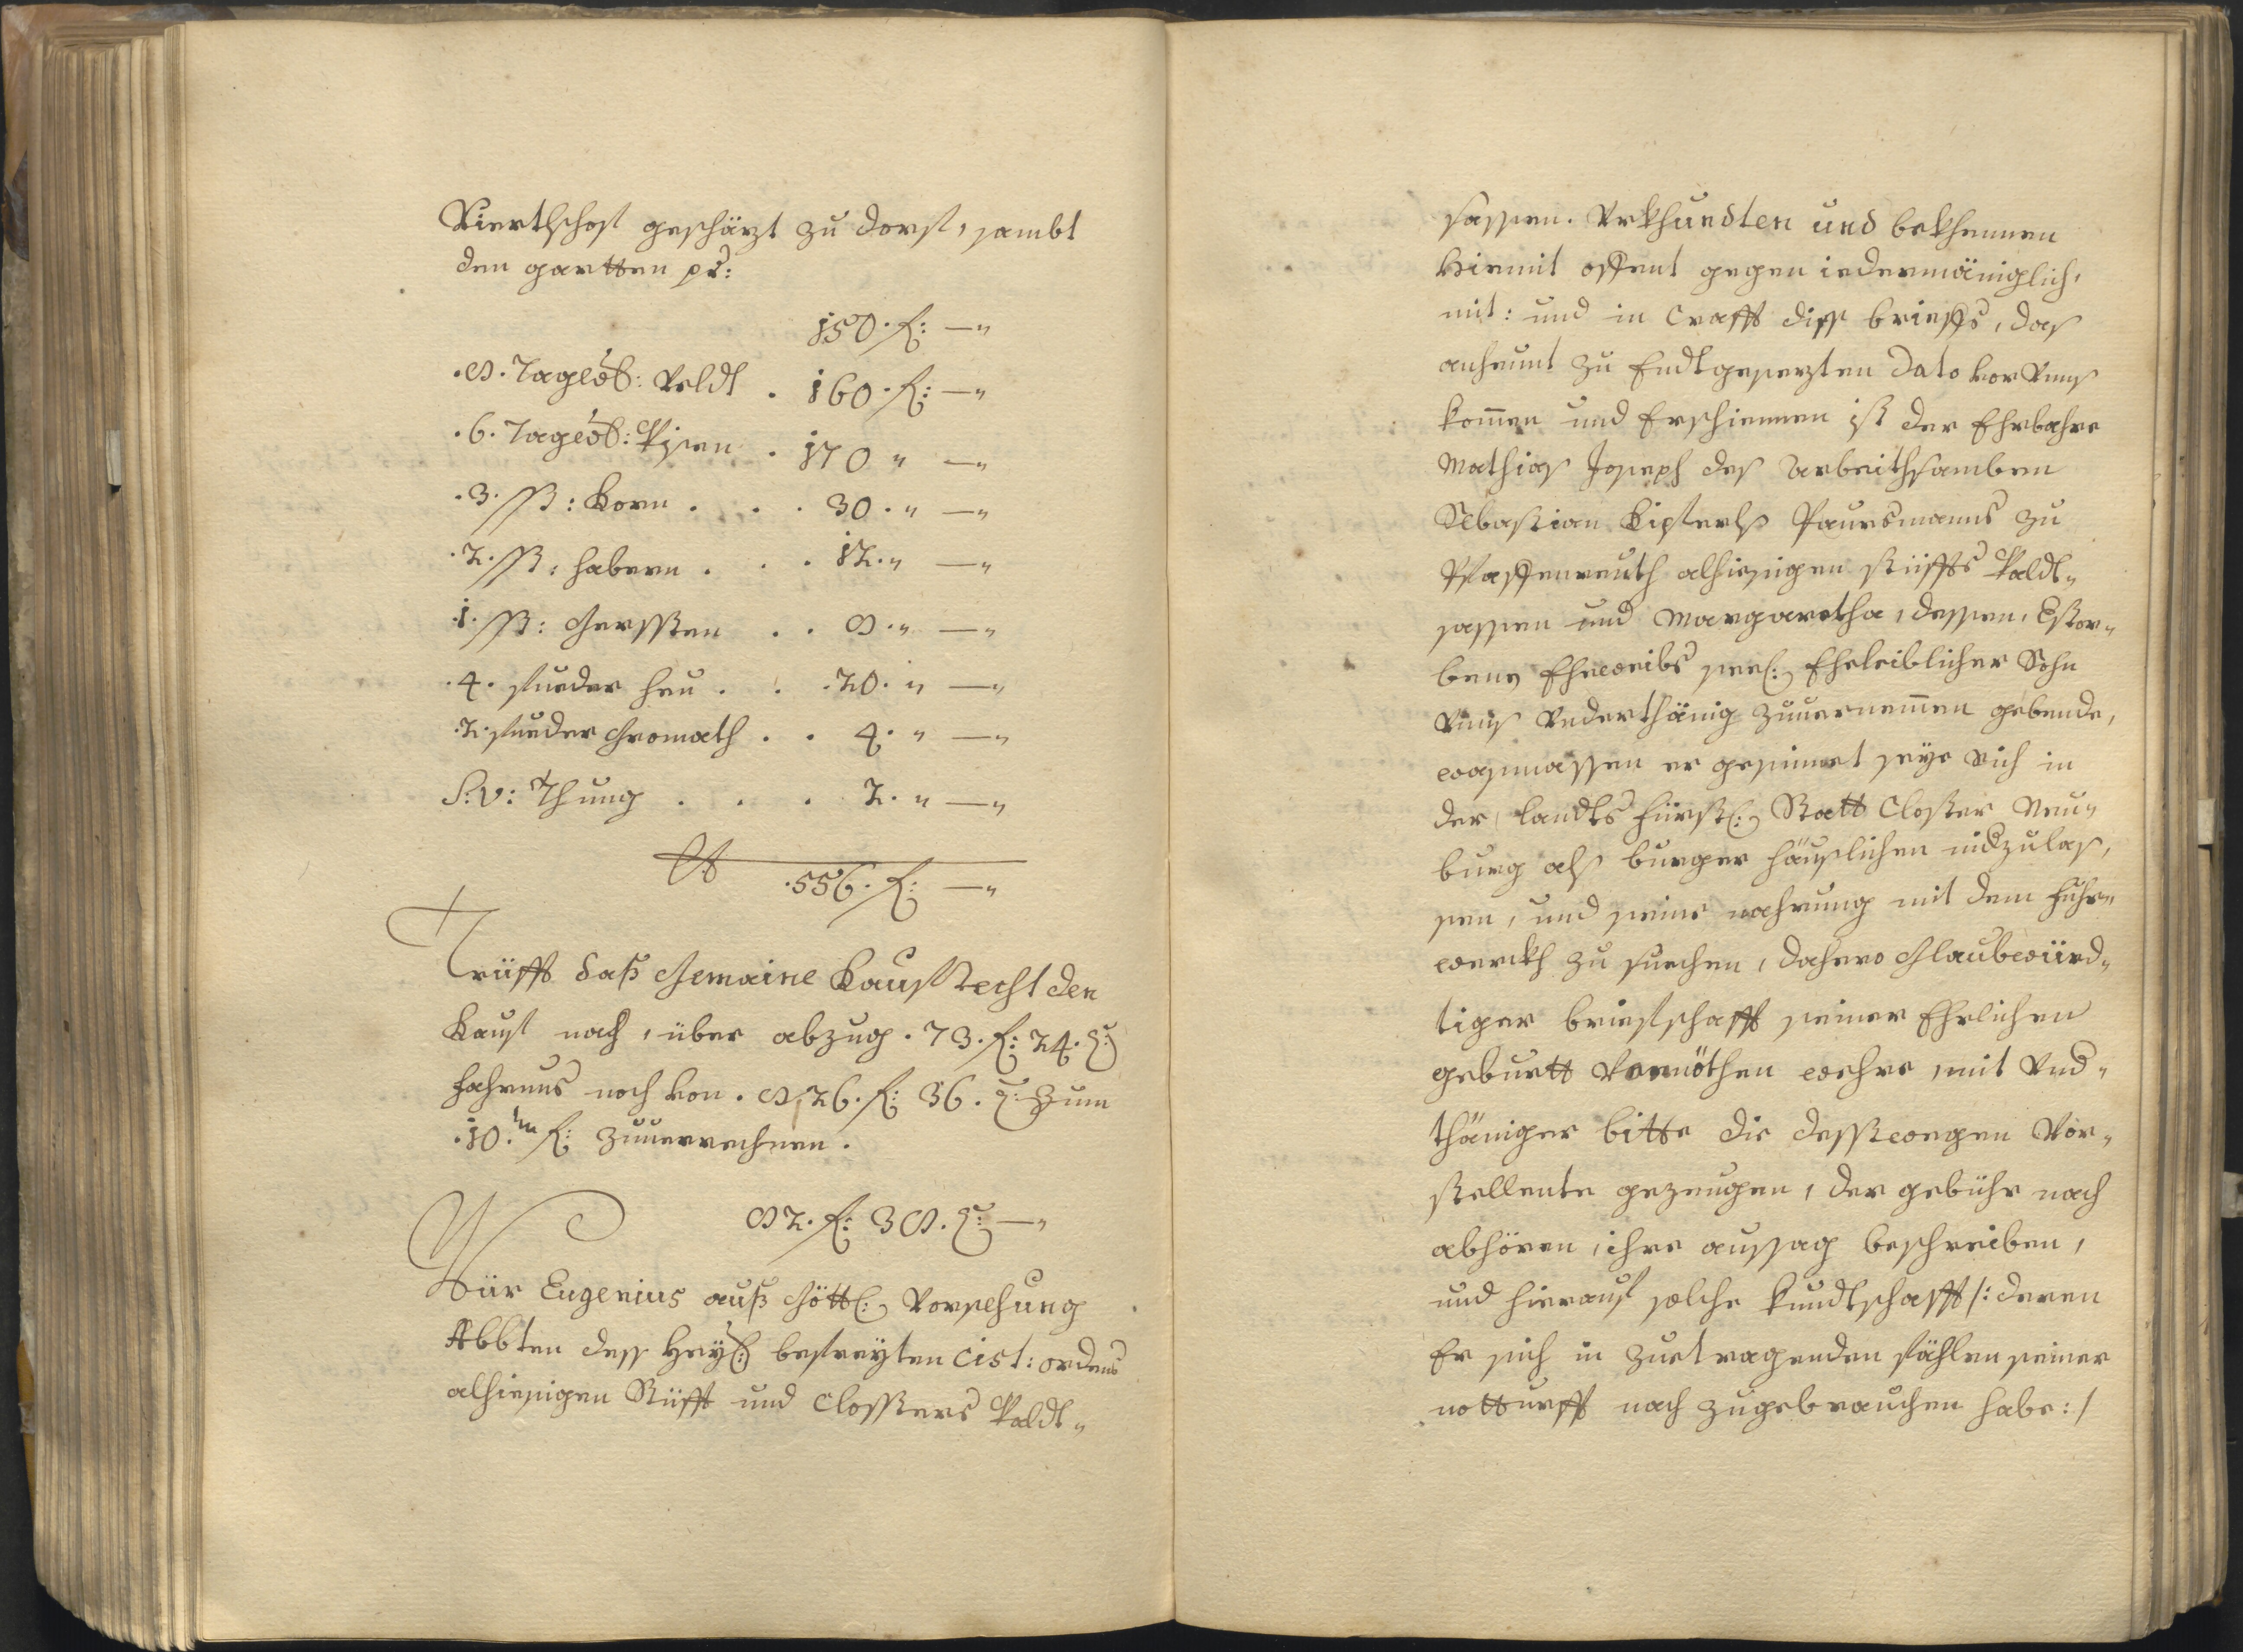 Viertlhof geschäzt zu dorf, sambt
den gartten pr:
150. fl: —"
.8. Tagw: Veldt . 160. fl: —"
.6. Tagw: Wisen . 170 " —"
.3. ß: Korn . . . 30. " —"
.2. ß: habern . . . 12. " —"
.1. ß: Gerssten . . 8. " —"
.4. fueder heu . . .20. " —"
.2. fueder Gromath . . 4. " —"
S: v: Thung . . . 2. " —"
.556. fl: —"
Trüfft daß Gemaine Kauffrecht den
Kauf nach, über abzug .73. fl: 24. x:
fahrnus noch von .826. fl: 36. x: Zum
.10.tn fl: zuuerrechnen.
82. fl: 38. x: —"
Wür Eugenius auß Göttl: Vorsehung
Abbten dess Heyl: befreyten Cist: ordens
alhiesigen Stüfft und Clossters Waldt-
sassen. Vrkhundten und bekhennen
hiemit offent gegen iedermäniglich,
mit: und in Crafft diss brieffs, das
anheunt zu Endtgesezten Dato vor Vnns
komen und Erschiennen ist der Ehrbahre
Mathias Joseph des Arbeithsamben
Sebastian Kisterls Paursmanns zu
Pfaffenreuth alhiesigen stüffts Waldt-
sassen und Margaretha, dessen, Estor-
bens Eheweibs seel: Eheleiblicher Sohn
Vnns Vnderthänig zuuernemen gebende,
wasmassen er gesinnet seye sich in
der landtsfürstl: Statt Closter Neu-
burg als burger häuslichen nidzulas,
sen, und seine nahrung mit dem fuhr-
werckh zu suechen, dahero Glaubwürd-
tiger briefschafft seiner Ehelichen
geburtt Vonnöthen wehre, mit Vnd-
thäniger bitte die desstwegen Vor-
stellente gezeugen, der gebühr nach
abhören, ihre aussag beschreiben,
und hierauf solche kundtschafft /: deren
Er sich in zuetragenden fählen seiner
notturfft nach zugebrauchen habe: /